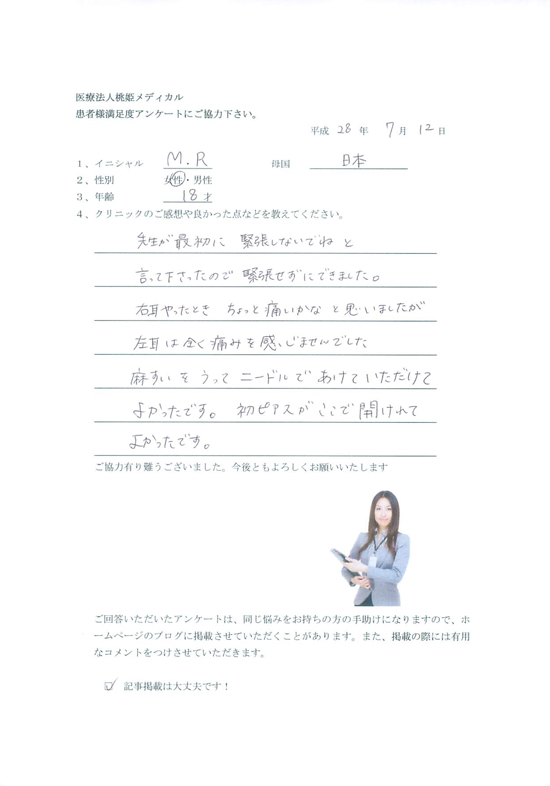 医療法人桃姫メディカル
患者様満足度アンケートにご協力下さい。
平成 28 年 7 月 12 日
1、イニシャル M.R 母国 日本
2、性別 女性・男性
3、年齢 18 才
4、クリニックのご感想や良かった点などを教えてください。
先生が最初に 緊張しないでね と
言って下さったので 緊張せずにできました。
右耳やったとき ちょっと痛いかな と思いましたが
左耳は全く痛みを感じませんでした
麻すいをうって ニードルで あけていただけて
よかったです。 初ピアスがここで開けれて
よかったです。
ご協力有り難うございました。今後ともよろしくお願いいたします
ご回答いただいたアンケートは、同じ悩みをお持ちの方の手助けになりますので、ホ
ームページのブログに掲載させていただくことがあります。また、掲載の際には有用
なコメントをつけさせていただきます。
☑ 記事掲載は大丈夫です！